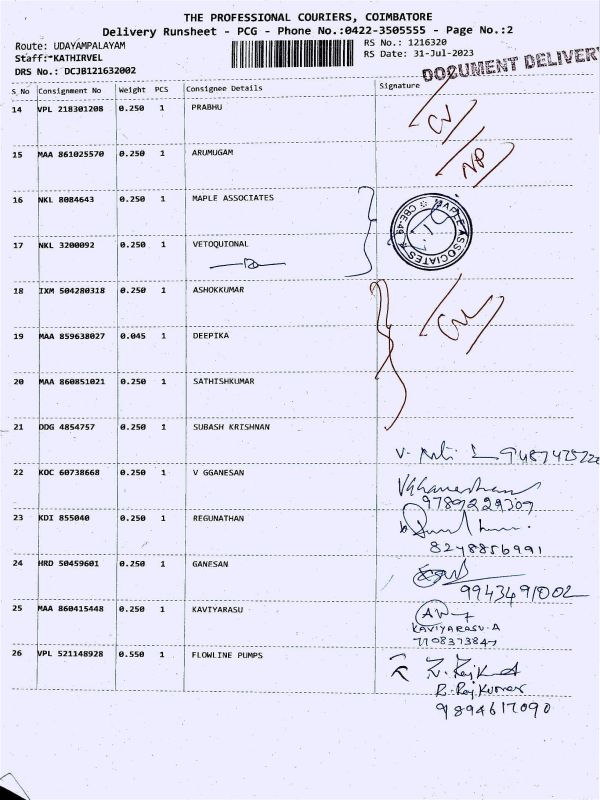 THE PROFESSIONAL COURIERS, COIMBATORE
Delivery Runsheet - PCG - Phone No.:0422-3505555 - Page No.:2
Route: UDAYAMPALAYAM
RS No.: 1216320
Staff: KATHIRVEL
RS Date: 31-Jul-2023
DRS No.: DCJB121632002
DOCUMENT DELIVERY
S_No Consignment No Weight PCS Consignee Details Signature
14 VPL 218301208 0.250 1 PRABHU
15 MAA 861025570 0.250 1 ARUMUGAM
NP
16 NKL 8084643 0.250 1 MAPLE ASSOCIATES
MAPLE ASSOCIATES CBE-49
17 NKL 3200092 0.250 1 VETOQUIONAL
18 IXM 504280318 0.250 1 ASHOKKUMAR
19 MAA 859638027 0.045 1 DEEPIKA
20 MAA 860851021 0.250 1 SATHISHKUMAR
21 DDG 4854757 0.250 1 SUBASH KRISHNAN
22 KOC 60738668 0.250 1 V GGANESAN
9789229309
23 KDI 855040 0.250 1 REGUNATHAN
8248856991
24 HRD 50459601 0.250 1 GANESAN
9943491002
25 MAA 860415448 0.250 1 KAVIYARASU
KAVIYARASU.A
7708373847
26 VPL 521148928 0.550 1 FLOWLINE PUMPS
R. Raj Kumar
9894617090